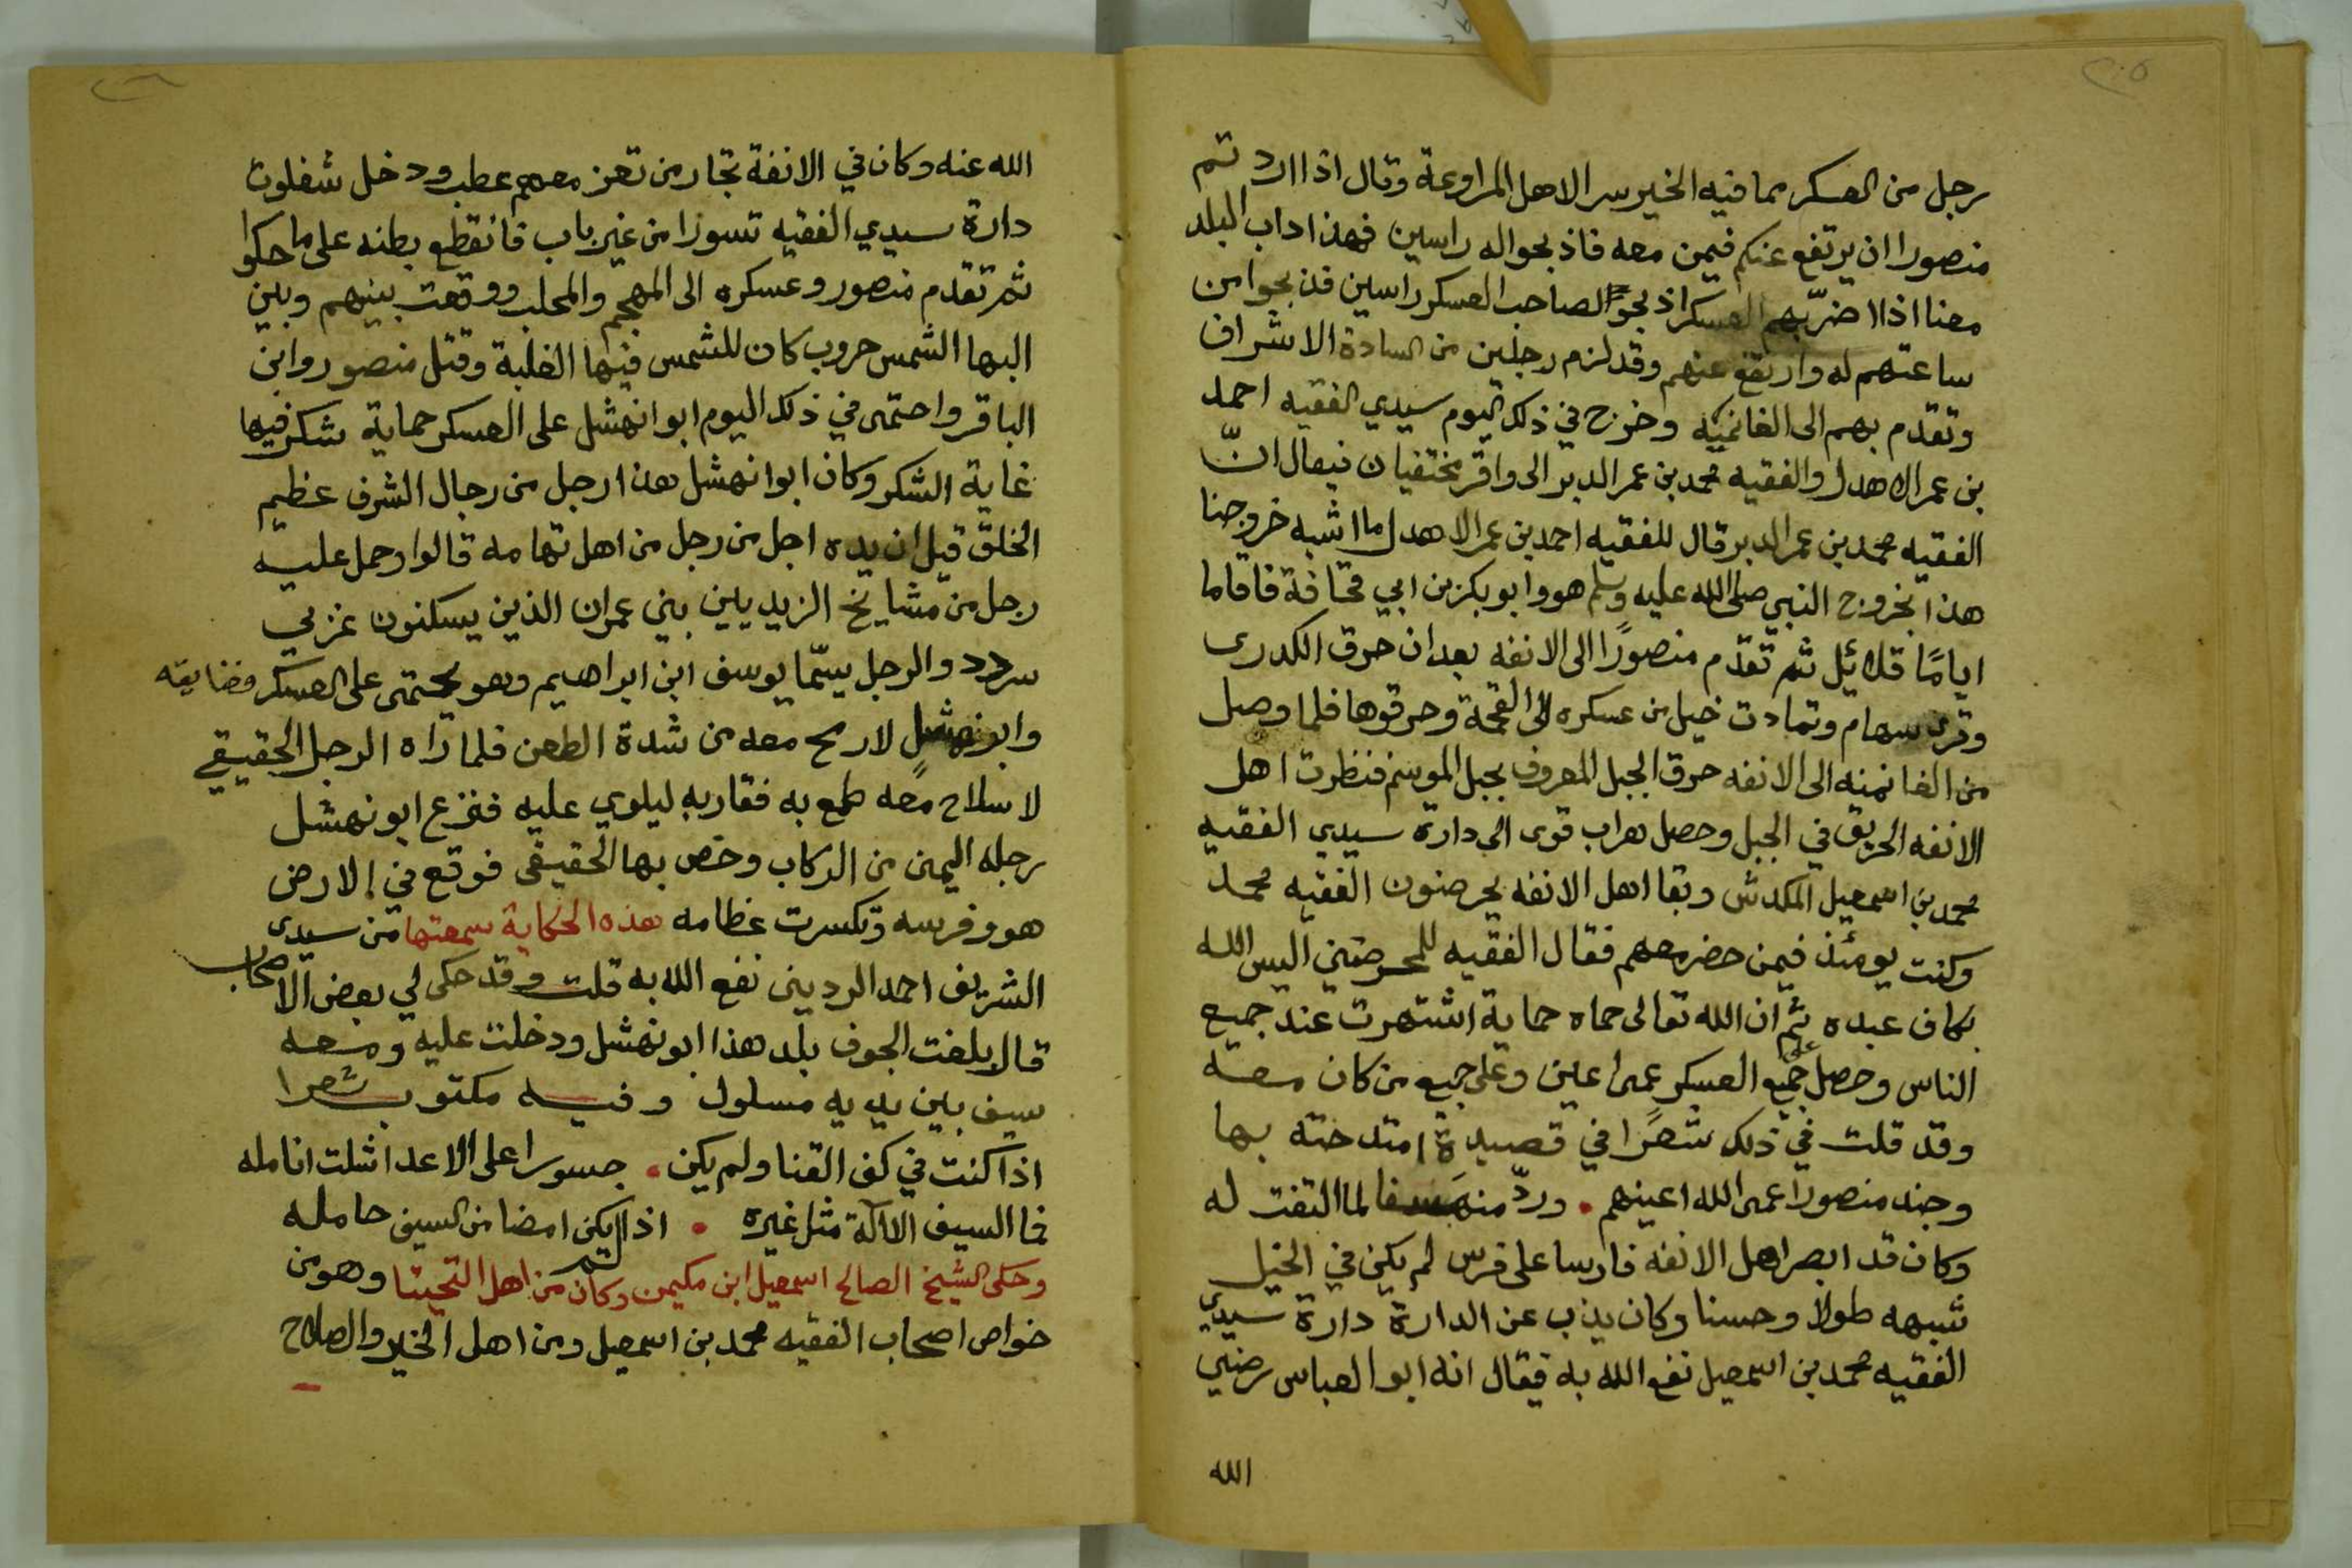 ٢٠٥
رجل من العسكر مما فيه الخير سر الاهل المراوعة وقال اذا اردتم
منصورا ان يرتفع عنكم فيمن معه فاذبحوا له راسين فهذا داب البلد
معنا اذا ضربهم العسكر اذبحوا لصاحب العسكر راسين فذبحوا من
ساعتهم له وارتفع عنهم وقد لزم رجلين من السادة الاشراف
وتقدم بهم الى الغانميه وخرج في ذلك اليوم سيدي الفقيه احمد
بن عمر الاهدل والفقيه محمد بن عمر الدبر الى واقر مختفيان فيقال انّ
الفقيه محمد بن عمر الدبر قال للفقيه احمد بن عمر الاهدل ما اشبه خروجنا
هذا بخروج النبي صلى الله عليه وسلم هو وابو بكر بن ابي قحافة فاقاما
ايامًا قلائل ثم تقدّم منصورًا الى الانفه بعد ان حرق الكدرى
وقرى سهام وتمادت خيل من عسكره الى القحمة وحرقوها فلما وصل
من الغانميه الى الانفه حرق الجبل المعروف بجبل الموسم فنظرت اهل
الانفه الحريق في الجبل وحصل هراب قوى الى دارة سيدي الفقيه
محمد بن اسمعيل المكدش وبقا اهل الانفه يحرضون الفقيه محمد
وكنت يومئذ فيمن حضر معهم فقال الفقيه للمحرضين اليس الله
بكاف عبده ثم ان الله تعالى حماه حماية اشتهرت عند جميع
الناس وحصل على جميع العسكر عمى اعين وعلى جميع من كان معه
وقد قلت في ذلك شعرًا في قصيدة امتدحته بها
وجند منصورا عمى الله اعينهم • وردّ منهم لما التفت له
وكان قد ابصر اهل الانفه فارسا على فرس لم يكن في الخيل
شبهه طولا وحسنا وكان يذب عن الدارة دارة سيدي
الفقيه محمد بن اسمعيل نفع الله به فقال انه ابو العباس رضي
الله
الله عنه وكان في الانفة تجار من تعز معهم عطب ودخل شغلوت
دارة سيدي الفقيه تسورا من غير باب فانقطع بطنه على ما حكوا
ثم تقدم منصور وعسكره الى المهجم والمحلب ووقعت بينهم وبين
البها الشمس حروب كان للشمس فيها الغلبة وقتل منصور وابن
الباقر واحتمى في ذلك اليوم ابو انهشل على العسكر حماية شكر فيها
غاية الشكر وكان ابو انهشل هذا رجل من رجال الشرف عظيم
الخلق قيل ان يده اجل من رجل من اهل تهامه قالوا وحمل عليه
رجل من مشايخ الزيديين بني عمران الذين يسكنون غربي
سردد والرجل يسمّا يوسف ابن ابراهيم وهو يحتمى على العسكر فضايقه
وابو نهشل لا رمح معه من شدة الطعن فلما راه الرجل الحقيقي
لا سلاح معه طمع به فقاربه ليلوي عليه فنزع ابو نهشل
رجله اليمن من الركاب وخص بها الحقيقى فوقع في الارض
هو وفرسه وتكسرت عظامه هذه الحكاية سمعتها من سيدى
الشريف احمد الردينى نفع الله به قلت وقد حكى لي بعض الاصحاب
قال بلغت الجوف بلد هذا ابو نهشل ودخلت عليه ومعه
سيف بين يديه مسلول وفيه مكتوب شعرا
اذا كنت في كف القنا ولم يكن • جسورا على الاعدا شلت انامله
فما السيف الا آلة مثل غيره • اذا لم يكن امضا من السيف حامله
وحكى الشيخ الصالح اسمعيل ابن مكيمن وكان من اهل التحيتا وهو من
خواص اصحاب الفقيه محمد بن اسمعيل ومن اهل الخير والصلاح